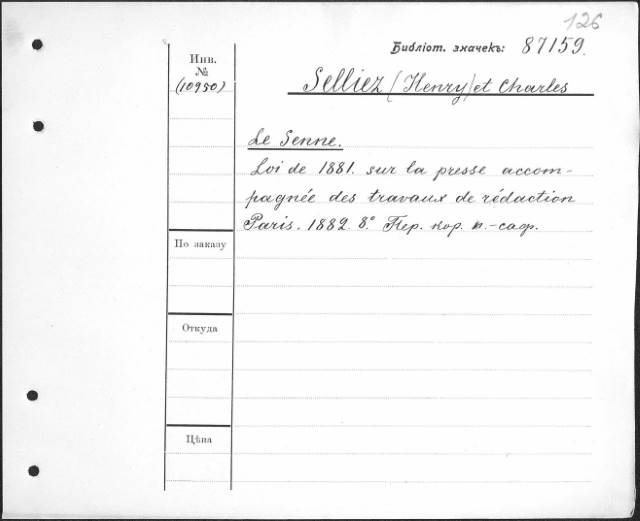 126
Библіот. значекъ: 87159.
Инв.
№
(10950)
Selliez (Henry) et Charles
Le Senne.
Loi de 1881. sur la presse accom-
pagnée des travaux de rédaction
Paris. 1882. 8.° Пер. кор. п.-саф.
По заказу
Откуда
Цѣна